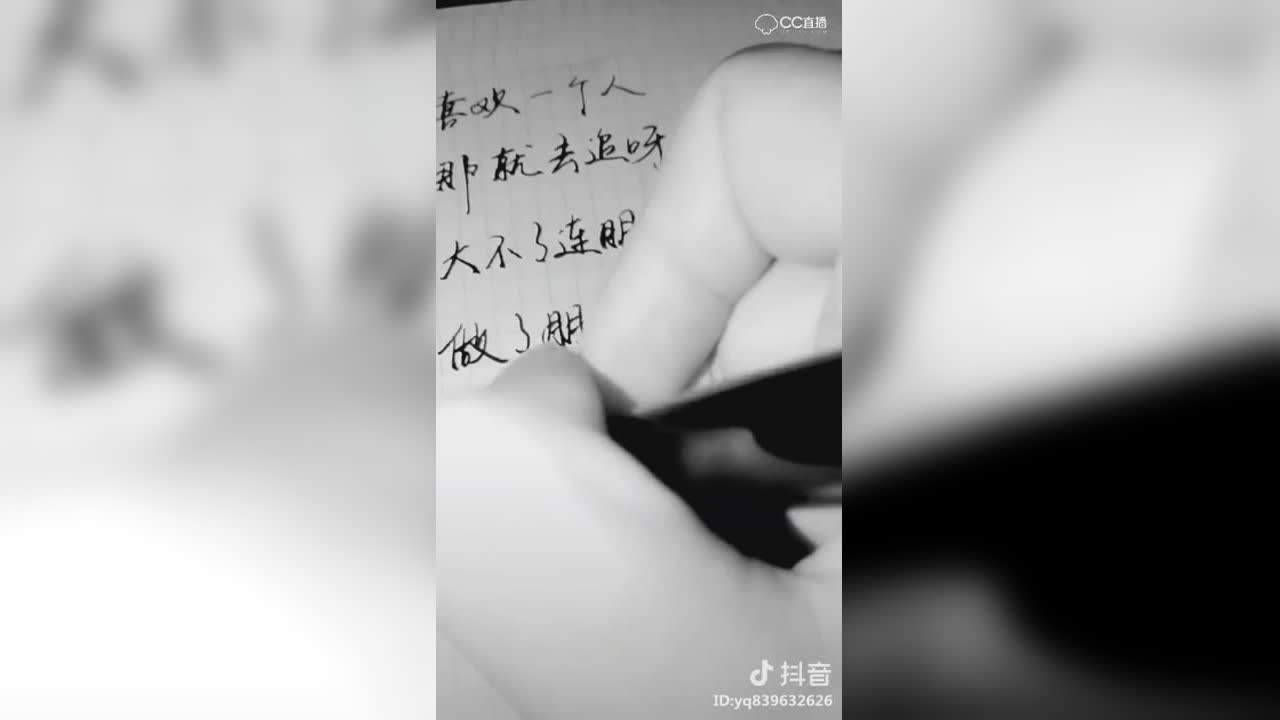 CC直播
喜欢一个人
那就去追呀
大不了连朋
做了朋
抖音
ID:yq839632626